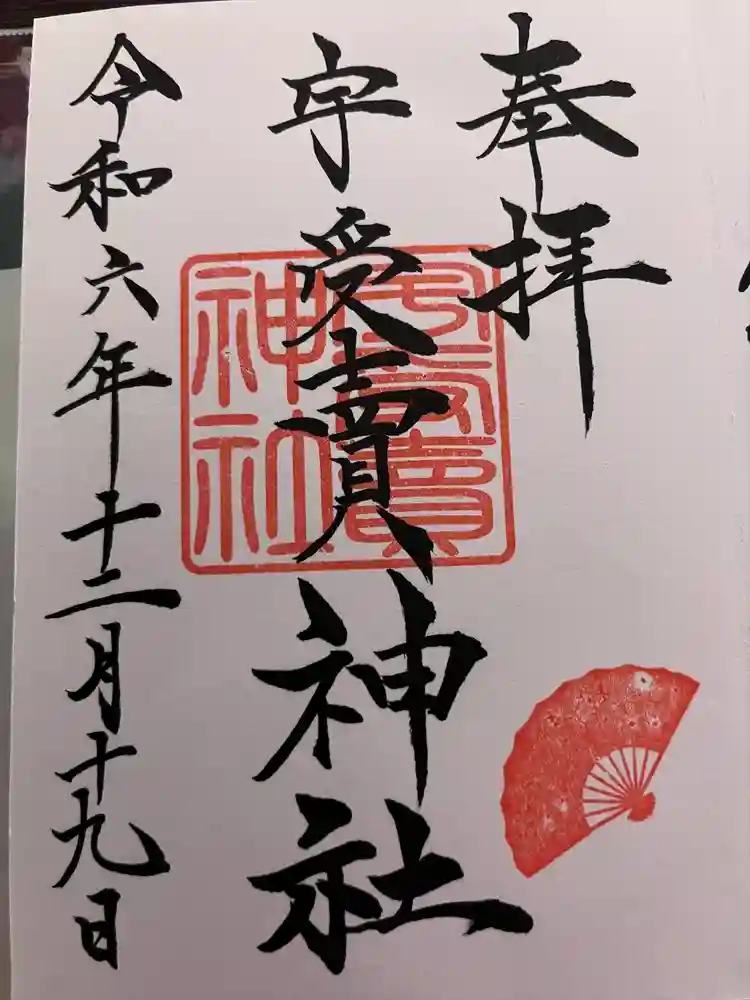 奉拝
宇受賣神社
宇受賣
神社
令和六年十二月十九日